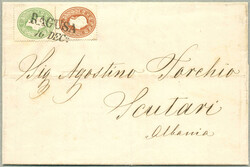 RAGUSA
16 DEC.
Sig Agostino Torchio
Scutari
Albania